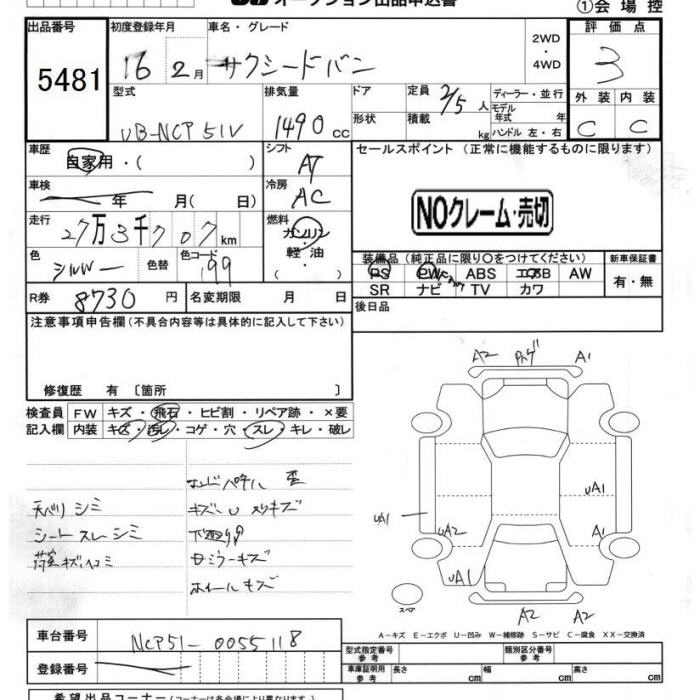 オークション出品申込書
①会場控
出品番号 初度登録年月 車名・グレード 2WD 評価点
5481 16 2月 サクシードバン ・4WD 3
型式 排気量 ドア 定員 2/5人 ディーラー・並行 外装 内装
UB-NCP51V 1490cc 形状 積載 kg モデル年式 年 ハンドル 左・右 C C
車歴 自家用・( ) シフト AT セールスポイント (正常に機能するものに限ります)
車検 年 月( 日) 冷房 AC
NOクレーム・売切
走行 27万3千707km 燃料 ガソリン
色 シルバー 色替 色コード 199 軽・油
装備品 (純正品に限り○をつけてください) 新車保証書
PS PW ABS エアB AW 有・無
SR ナビ TV カワ
R券 8730円 名変期限 月 日
後日品
注意事項申告欄 (不具合内容等は具体的に記入して下さい)
修復歴 有 〔箇所 〕
検査員 FW キズ・飛石・ヒビ割・リペア跡・×要
記入欄 内装 キズ・汚レ・コゲ・穴・スレ・キレ・破レ
A2 A1
天バリ シミ
シート スレ シミ
荷室キズ ヘコミ
ホイールキズ
UA1 UA2 UA1 A1
UA1
スペア
A2 A2
A-キズ E-エクボ U-凹み W-補修跡 S-サビ C-腐食 XX-交換済
車台番号 NCP51-0055118
登録番号
型式指定番号 参考 類別区分番号 参考
車庫証明用 参考 長さ cm 幅 cm 高さ cm
希望出品コーナー(コーナーは各会場により異なります)